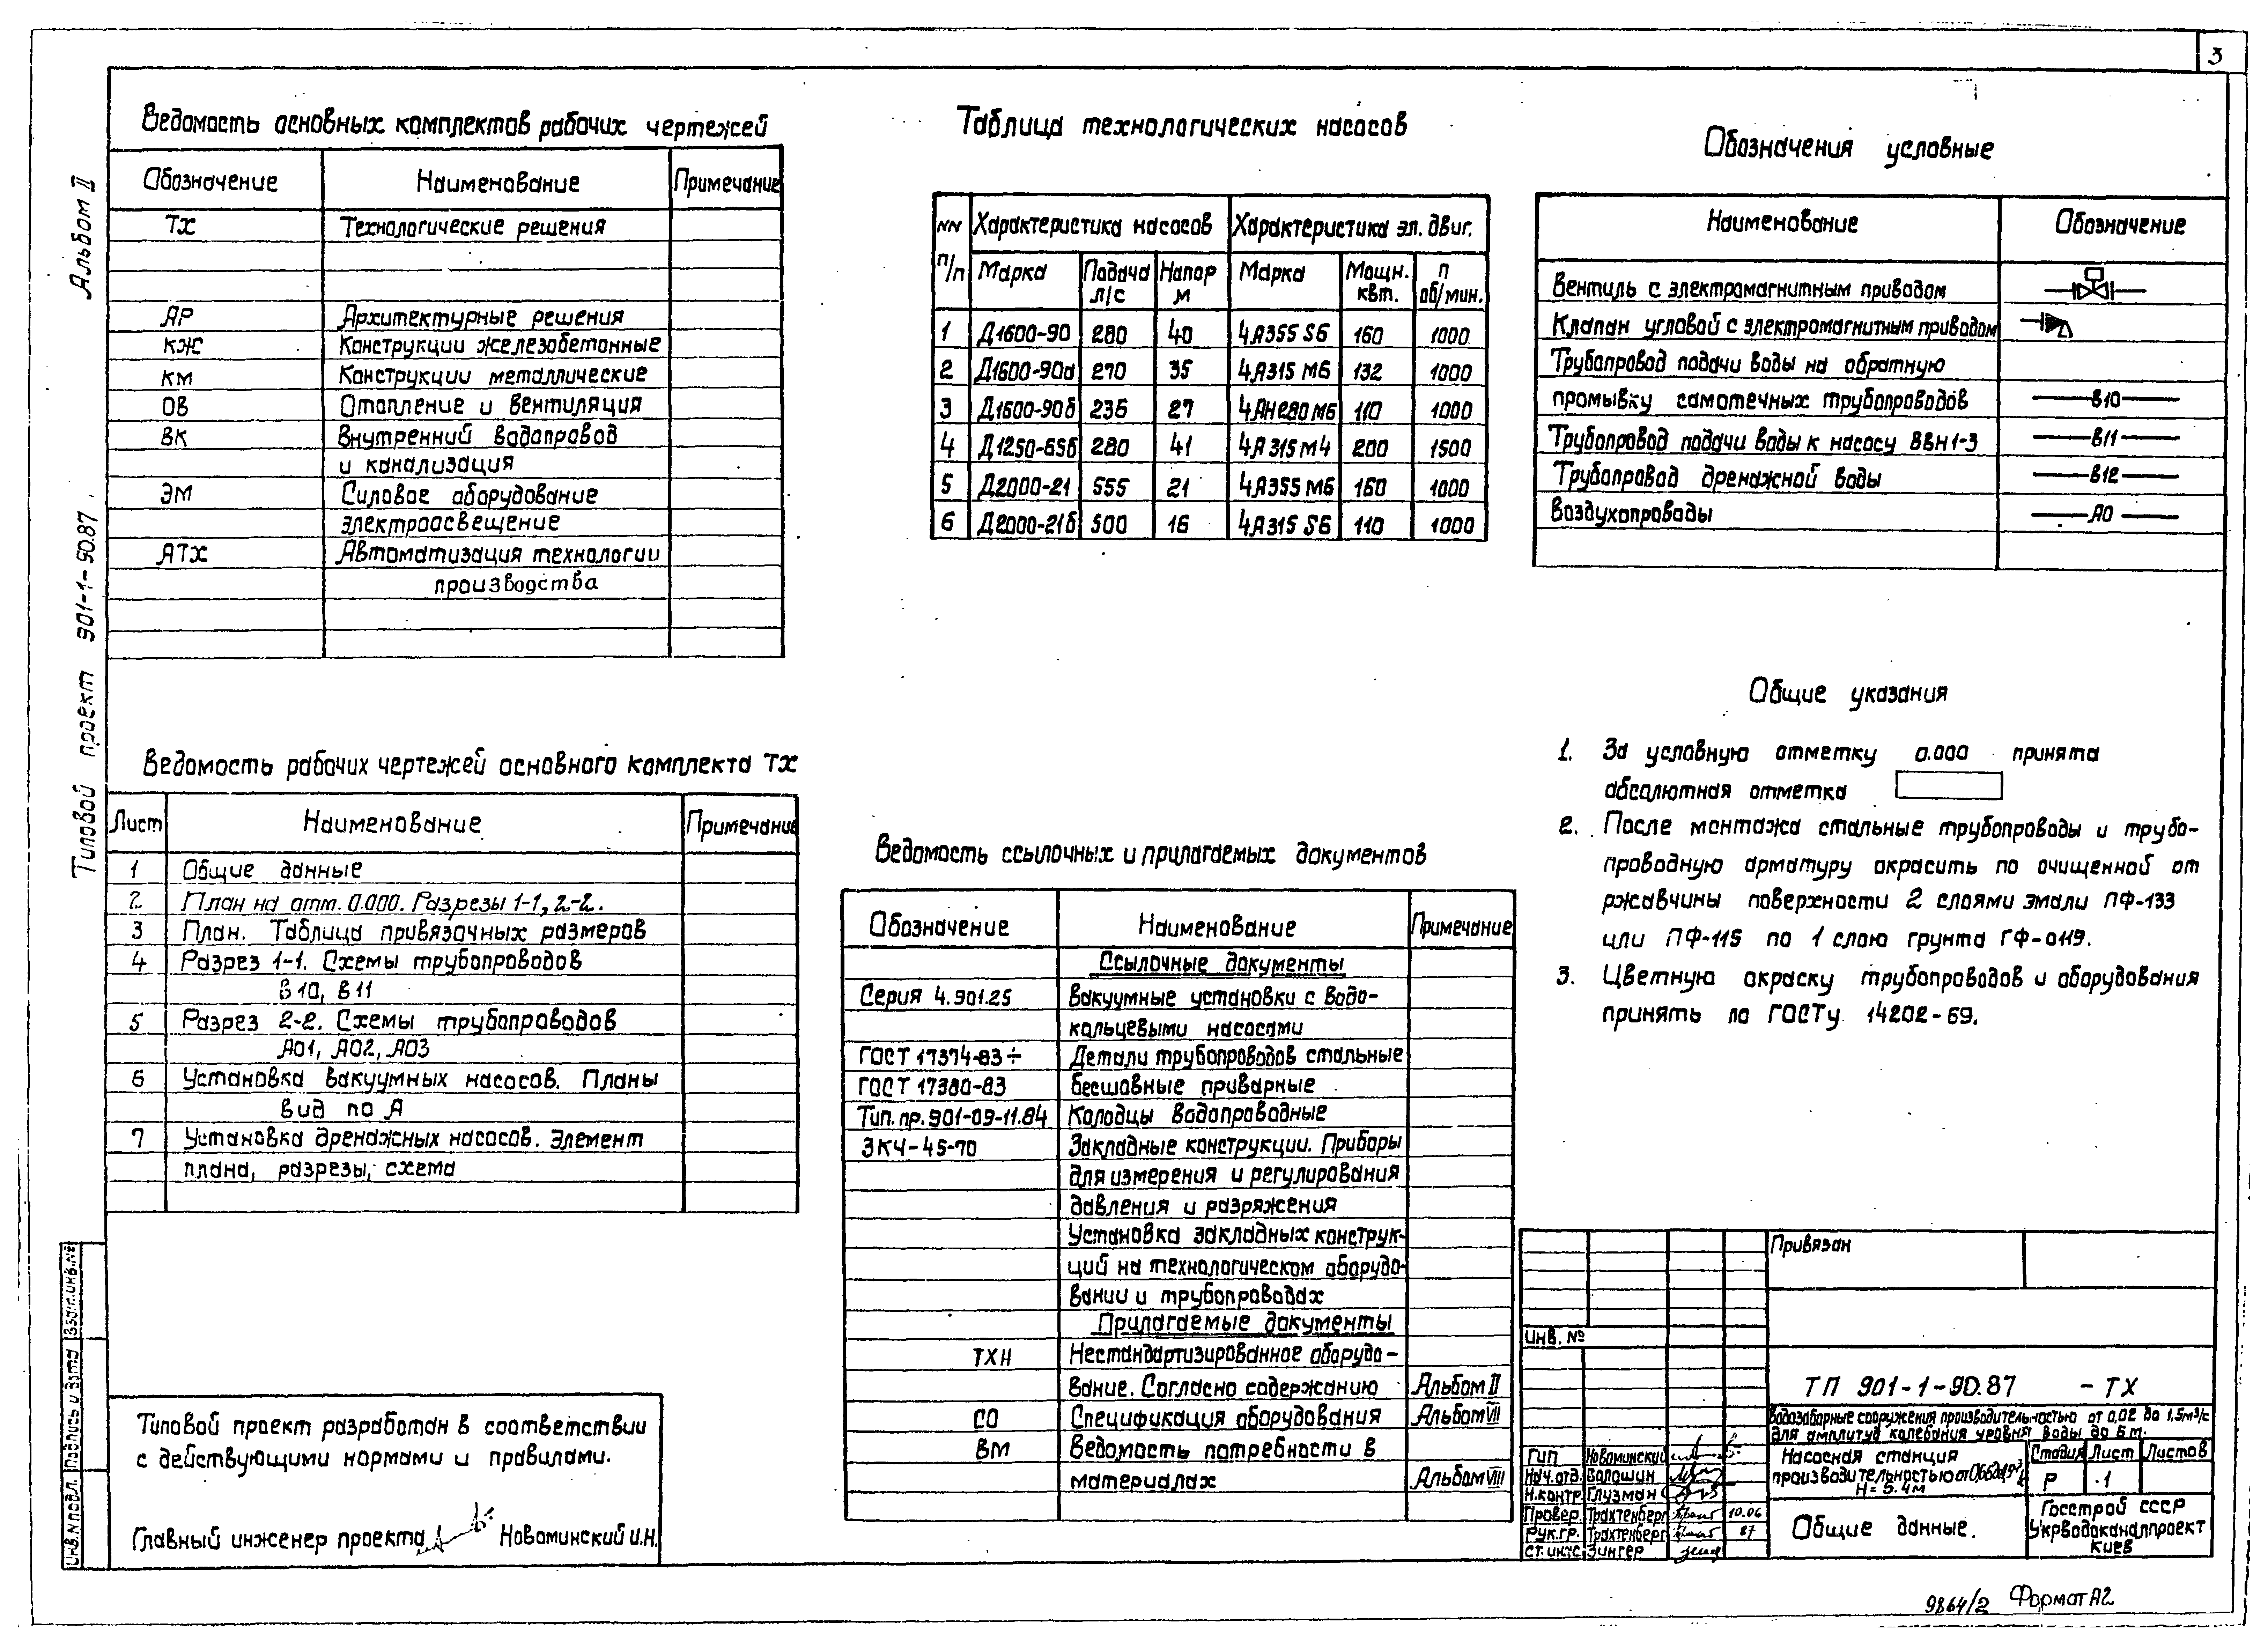 3
Альбом II
Типовой проект 901-1-90.87
Ведомость основных комплектов рабочих чертежей
Обозначение Наименование Примечание
ТХ Технологические решения
АР Архитектурные решения
КЖ Конструкции железобетонные
КМ Конструкции металлические
ОВ Отопление и вентиляция
ВК Внутренний водопровод
и канализация
ЭМ Силовое оборудование
электроосвещение
АТХ Автоматизация технологии
производства
Ведомость рабочих чертежей основного комплекта ТХ
Лист Наименование Примечание
1 Общие данные
2 План на отм. 0.000. Разрезы 1-1, 2-2.
3 План. Таблица привязочных размеров
4 Разрез 1-1. Схемы трубопроводов
В10, В11
5 Разрез 2-2. Схемы трубопроводов
А01, А02, А03
6 Установка вакуумных насосов. Планы
вид по А
7 Установка дренажных насосов. Элемент
плана, разрезы, схема
Типовой проект разработан в соответствии
с действующими нормами и правилами.
Главный инженер проекта Новоминский И.Н.
Таблица технологических насосов
NN п/п Характеристика насосов Характеристика эл. двиг.
Марка Подача л/с Напор м Марка Мощн. квт. п об/мин.
1 Д1600-90 280 40 4А355 S6 160 1000
2 Д1600-90а 270 35 4А315 М6 132 1000
3 Д1600-90б 236 27 4АН280 М6 110 1000
4 Д1250-65б 280 41 4А315М4 200 1500
5 Д2000-21 555 21 4А355 М6 160 1000
6 Д2000-21б 500 16 4А315 S6 110 1000
Ведомость ссылочных и прилагаемых документов
Обозначение Наименование Примечание
Ссылочные документы
Серия 4.901.25 Вакуумные установки с водо-
кольцевыми насосами
ГОСТ 17374-83÷ Детали трубопроводов стальные
ГОСТ 17380-83 бесшовные приварные
Тип.пр.901-09-11.84 Колодцы водопроводные
ЗКЧ-45-70 Закладные конструкции. Приборы
для измерения и регулирования
давления и разряжения
Установка закладных конструк-
ций на технологическом оборудо-
вании и трубопроводах
Прилагаемые документы
ТХН Нестандартизированное оборудо-
вание. Согласно содержанию Альбом II
СО Спецификация оборудования Альбом VII
ВМ Ведомость потребности в
материалах Альбом VIII
Обозначения условные
Наименование Обозначение
Вентиль с электромагнитным приводом
Клапан угловой с электромагнитным приводом
Трубопровод подачи воды на обратную
промывку самотечных трубопроводов В10
Трубопровод подачи воды к насосу ВВН1-3 В11
Трубопровод дренажной воды В12
Воздухопроводы А0
Общие указания
1. За условную отметку 0.000 принята
абсолютная отметка
2. После монтажа стальные трубопроводы и трубо-
проводную арматуру окрасить по очищенной от
ржавчины поверхности 2 слоями эмали ПФ-133
или ПФ-115 по 1 слою грунта ГФ-0119.
3. Цветную окраску трубопроводов и оборудования
принять по ГОСТу 14202-69.
Привязан
Инв. №
ТП 901-1-90.87 -ТХ
Водозаборные сооружения производительностью от 0,02 до 1,5м³/с
для амплитуд колебания уровня воды до 6 м.
ГИП Новоминский
Нач.отд. Волошин
Н.контр. Глузман
Провер. Трахтенберг 10.06
Рук.гр. Трахтенберг 87
Ст.инж. Зингер
Насосная станция
производительностью от
Н=5.4м
Стадия Лист Листов
Р 1
Общие данные.
Госстрой СССР
Укрводоканалпроект
Киев
Инв.N подл. Подпись и дата Взам.инв.№
9864/2 Формат А2